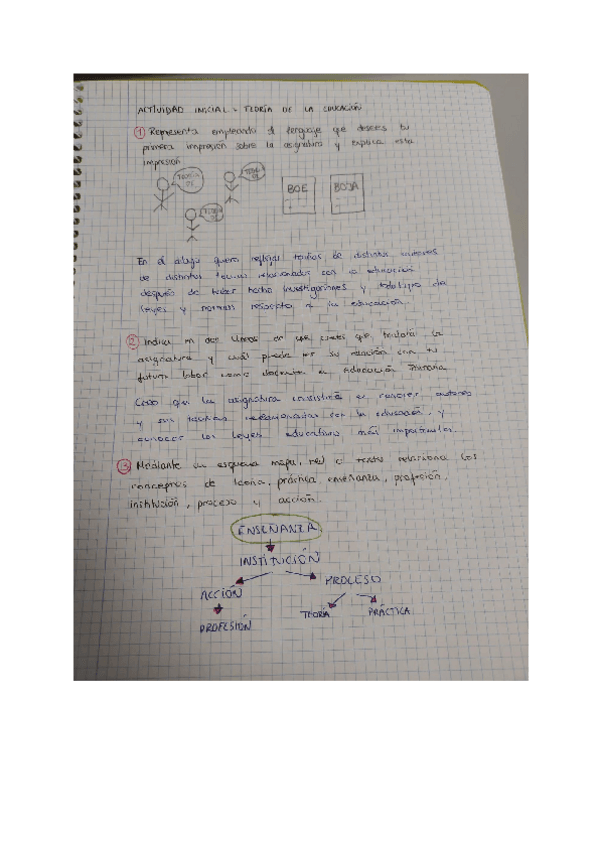 ACTIVIDAD INICIAL - TEORÍA DE LA EDUCACIÓN
1 Representa empleando el lenguaje que desees tu
primera impresión sobre la asignatura y explica esta
impresión
TEORÍA DE
TEORÍA DE
TEORÍA DE
BOE
BOJA
En el dibujo quiero reflejar teorías de distintos autores
de distintos temas relacionados con la educación
después de haber hecho investigaciones y todo tipo de
leyes y normas respecto a la educación.
2 Indica en dos líneas en qué crees que tratará la
asignatura y cuál puede ser su relación con tu
futura labor como docente en Educación Primaria
Creo que la asignatura consistirá en conocer autores
y sus teorías relacionadas con la educación, y
conocer las leyes educativas más importantes.
3 Mediante un esquema, mapa, red o texto relaciona los
conceptos de teoría, práctica, enseñanza, profesión,
institución, proceso y acción.
ENSEÑANZA
INSTITUCIÓN
ACCIÓN PROCESO
PROFESIÓN TEORÍA PRÁCTICA